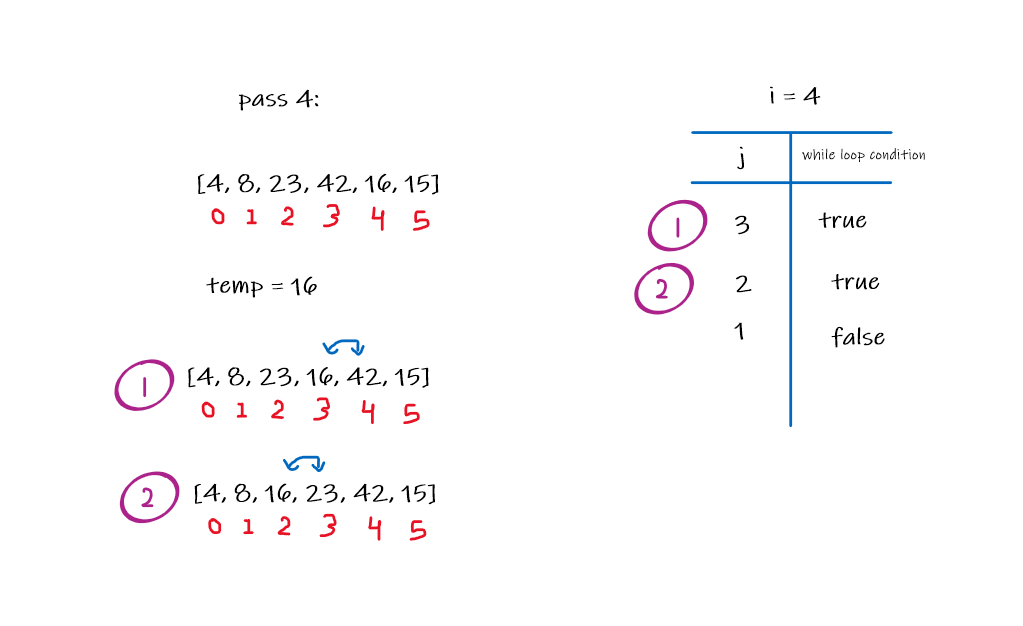 pass 4:
[4, 8, 23, 42, 16, 15]
0 1 2 3 4 5
temp = 16
1
[4, 8, 23, 16, 42, 15]
0 1 2 3 4 5
2
[4, 8, 16, 23, 42, 15]
0 1 2 3 4 5
i = 4
j while loop condition
1 3 true
2 2 true
1 false